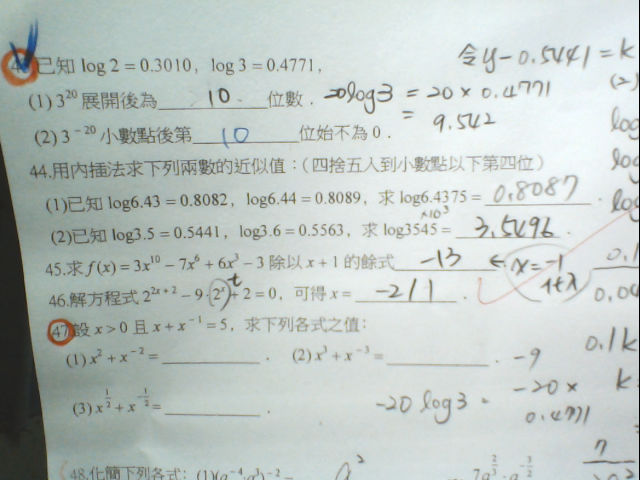 已知 log 2 = 0.3010, log 3 = 0.4771, 令y-0.5441=k
(1) 3^20 展開後為 10 位數. 20log3 = 20×0.4771
= 9.542
(2) 3^-20 小數點後第 10 位始不為 0.
44.用內插法求下列兩數的近似值:(四捨五入到小數點以下第四位)
(1)已知 log6.43 = 0.8082, log6.44 = 0.8089, 求 log6.4375 = 0.8087.
×10^3
(2)已知 log3.5 = 0.5441, log3.6 = 0.5563, 求 log3545 = 3.5496.
45.求 f(x) = 3x^10 - 7x^6 + 6x^3 - 3 除以 x + 1 的餘式 -13 ← x=-1
46.解方程式 2^(2x+2) - 9·2^x + 2 = 0, 可得 x = -2/1.
t
47.設 x > 0 且 x + x^-1 = 5, 求下列各式之值:
(1) x^2 + x^-2 = . (2) x^3 + x^-3 = . -9 0.1k
(3) x^(1/2) + x^(-1/2) = . -20 log3 = -20× k
0.4771
48.化簡下列各式: